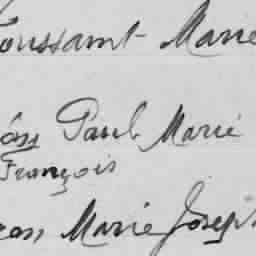 Toussaint Marie
Paul Marie
François
Marie Joseph